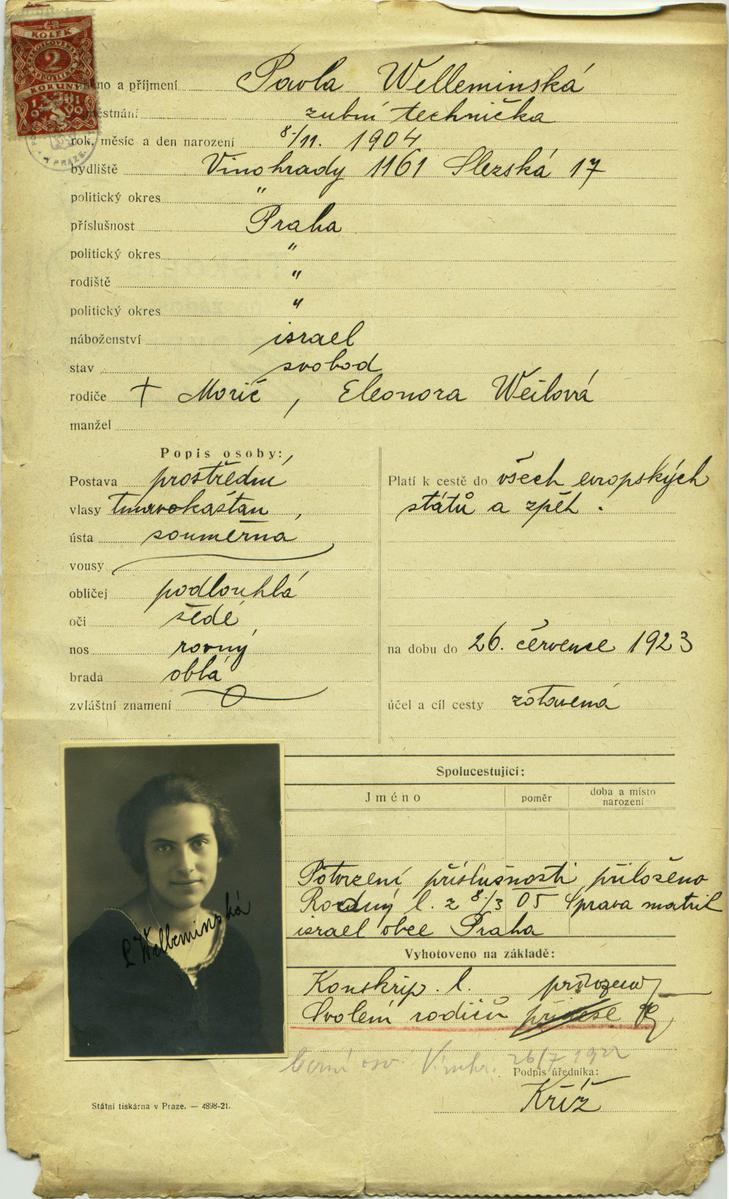 KOLEK
2
KORUNY
PRAZE
jméno a příjmení Pavla Welleminská
zaměstnání zubní technička
rok, měsíc a den narození 8/11. 1904
bydliště Vinohrady 1161 Slezská 17
politický okres "
příslušnost Praha
politický okres "
rodiště "
politický okres "
náboženství israel
stav svobod
rodiče † Moric, Eleonora Weilová
manžel
Popis osoby:
Postava prostřední
vlasy tmavokaštan,
ústa souměrná
vousy
obličej podlouhlá
oči šedé
nos rovný
brada oblá
zvláštní znamení
Platí k cestě do všech evropských
států a zpět.
na dobu do 26. července 1923
účel a cíl cesty zotavená
Spolucestující:
Jméno poměr doba a místo narození
Potvrzení příslušnosti přiloženo
Rodný l. z 8/3 05 správa matrik
israel obce Praha
Vyhotoveno na základě:
Konskrip. l.
Svolení rodičů
Vinohr. 26/7 1922
Podpis úředníka:
Kříž
P Welleminská
Státní tiskárna v Praze. — 4898-21.